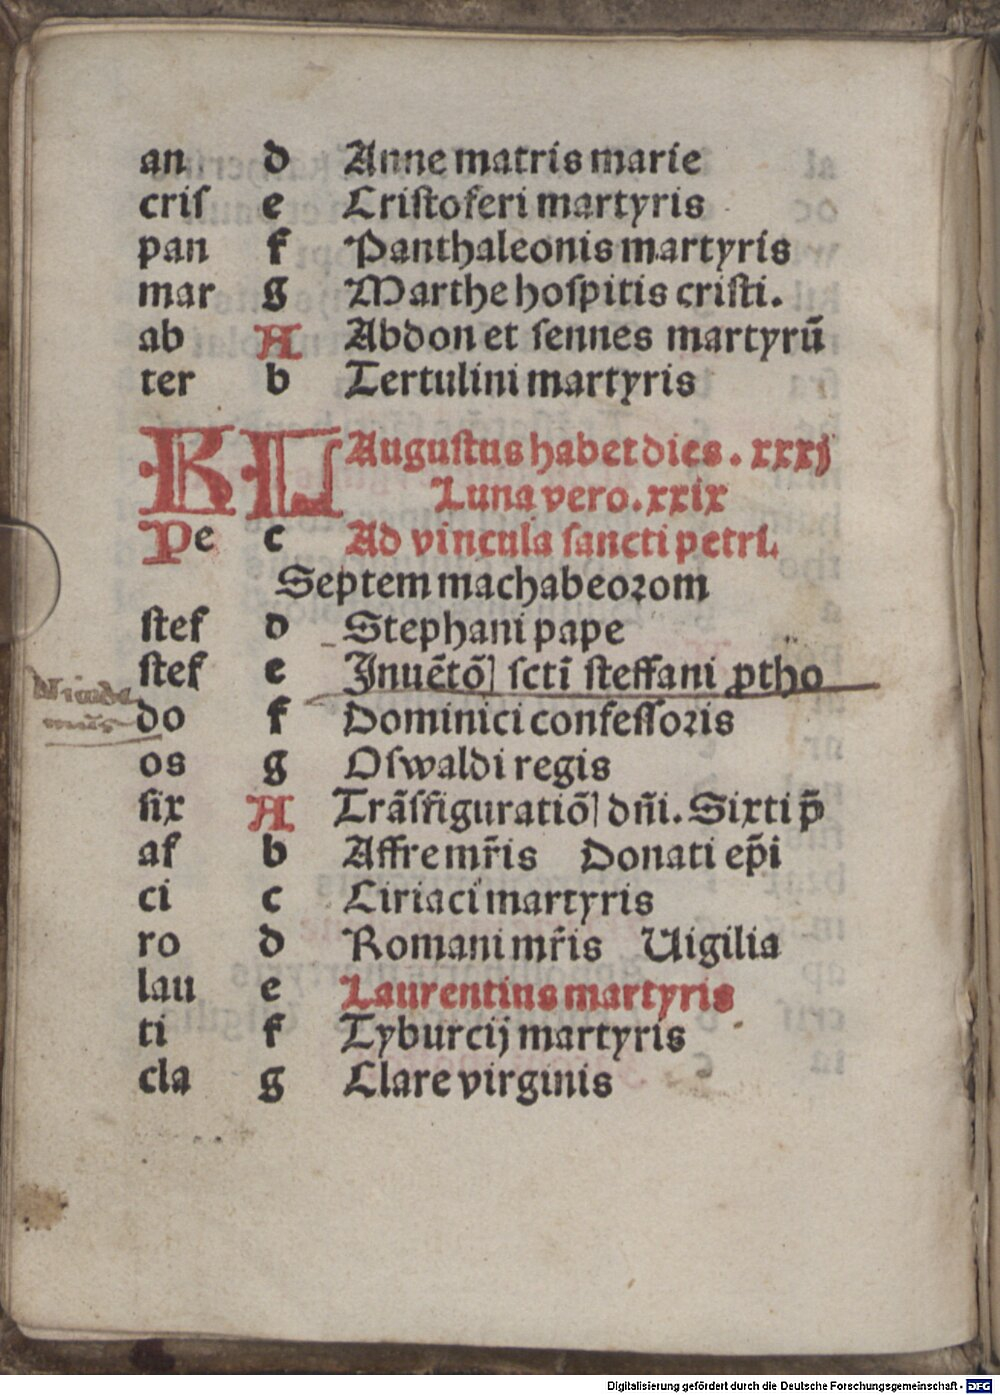 an d Anne matris marie
criſ e Criſtoferi martyris
pan f Panthaleonis martyris
mar g Marthe hoſpitis criſti.
ab A Abdon et ſennes martyrū
ter b Tertulini martyris
KL Auguſtus habet dies . xxxj
Luna vero . xxix
Pe c Ad vincula ſancti petri.
Septem machabeoꝛom
ſtef d Stephani pape
ſtef e Inuētō] ſctī ſteffani ptho
do f Dominici confeſſoꝛis
os g Oſwaldi regis
ſix A Trāſfiguratiō] dn̄i. Sixti p̄
af b Affre mr̄is Donati ep̄i
ci c Ciriaci martyris
ro d Romani mr̄is Uigilia
lau e Laurentius martyris
ti f Tyburcij martyris
cla g Clare virginis
Digitalisierung gefördert durch die Deutsche Forschungsgemeinschaft - DFG